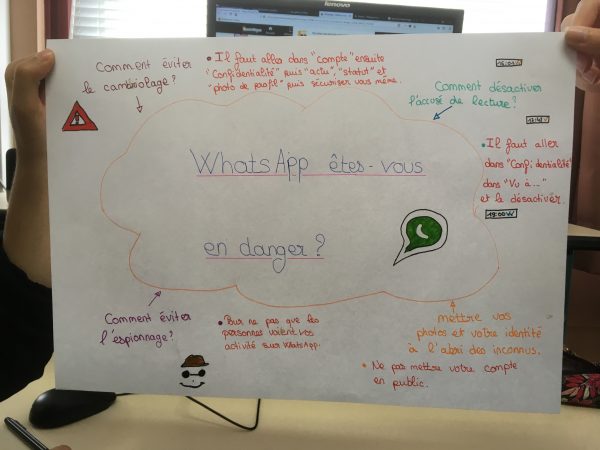 lenovo
Comment éviter
le cambriolage?
• Il faut aller dans "compte" ensuite
"Confidentialité" puis "actu", "statut" et
"photo de profil" puis sécuriser vous même.
Comment désactiver
l'accusé de lecture?
• Il faut aller
dans "Confidentialité"
dans "Vu à..."
et le désactiver.
WhatsApp êtes-vous
en danger?
Comment éviter
l'espionnage?
• Pour ne pas que les
personnes voient vos
activité sur WhatsApp.
mettre vos
photos et votre identité
à l'abri des inconnus.
• Ne pas mettre votre compte
en public.